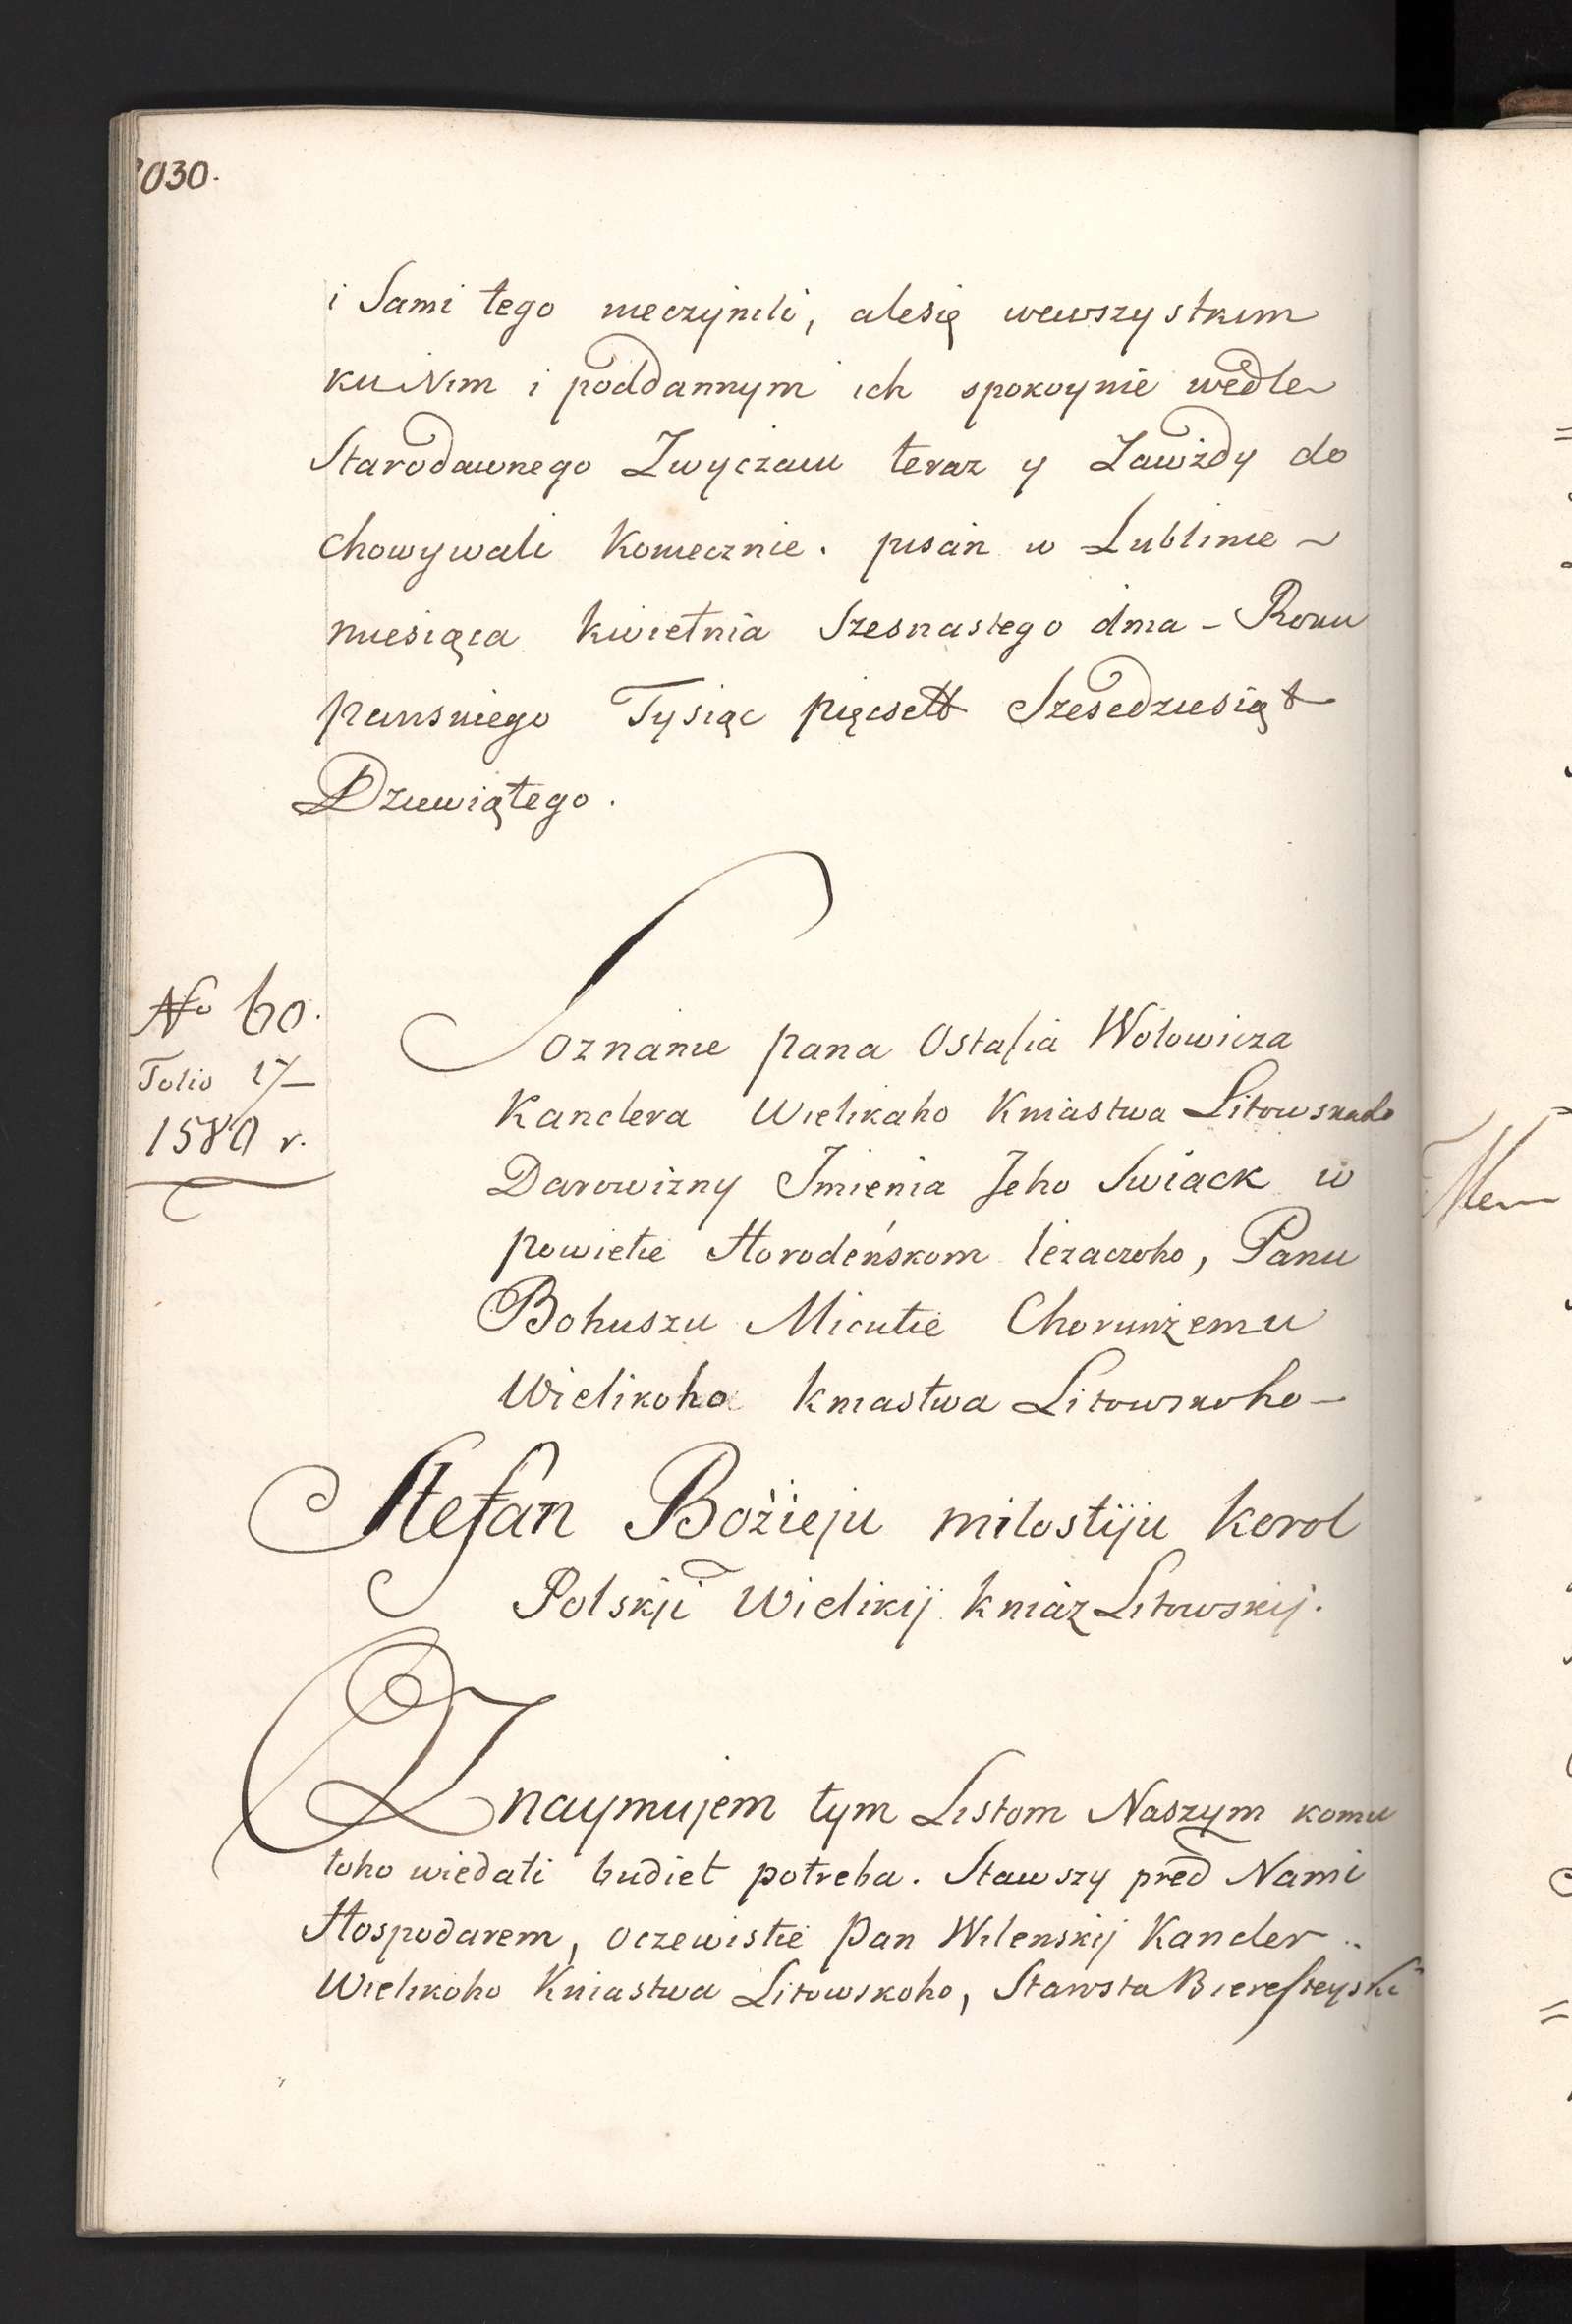 1030.
i Sami tego nieczynili, alesię wewszystkim
ku Nim i poddannym ich spokoynie wedle
Starodawnego Zwyczaiu teraz y Zawżdy do
chowywali koniecznie. pisan w Lublinie ~
miesiąca kwietnia Szesnastego dnia - Roku
panskiego Tysiąc pięcsett Szesedziesiąt
Dziewiątego.
No 60.
Folio 17—
1580 r.
Soznanie pana Ostafia Wołowicza
Kanclera Wielikaho Kniastwa Litowskaho
Darowizny Imienia Jeho Swiack w
powietie Horodeńskom leżaczoho, Panu
Bohuszu Micutie Chorunżemu
Wielikoho kniastwa Litowskoho —
Stefan Bożieju miłostiju korol
Polskji Wielikij kniaz Litowskij.
Znaymujem tym Listom Naszym komu
toho wiedati budiet potreba. Stawszy pred Nami
Hospodarem, oczewistie Pan Wilenskij Kancler
Wielikoho Kniastwa Litowskoho, Starosta Bieresteyski